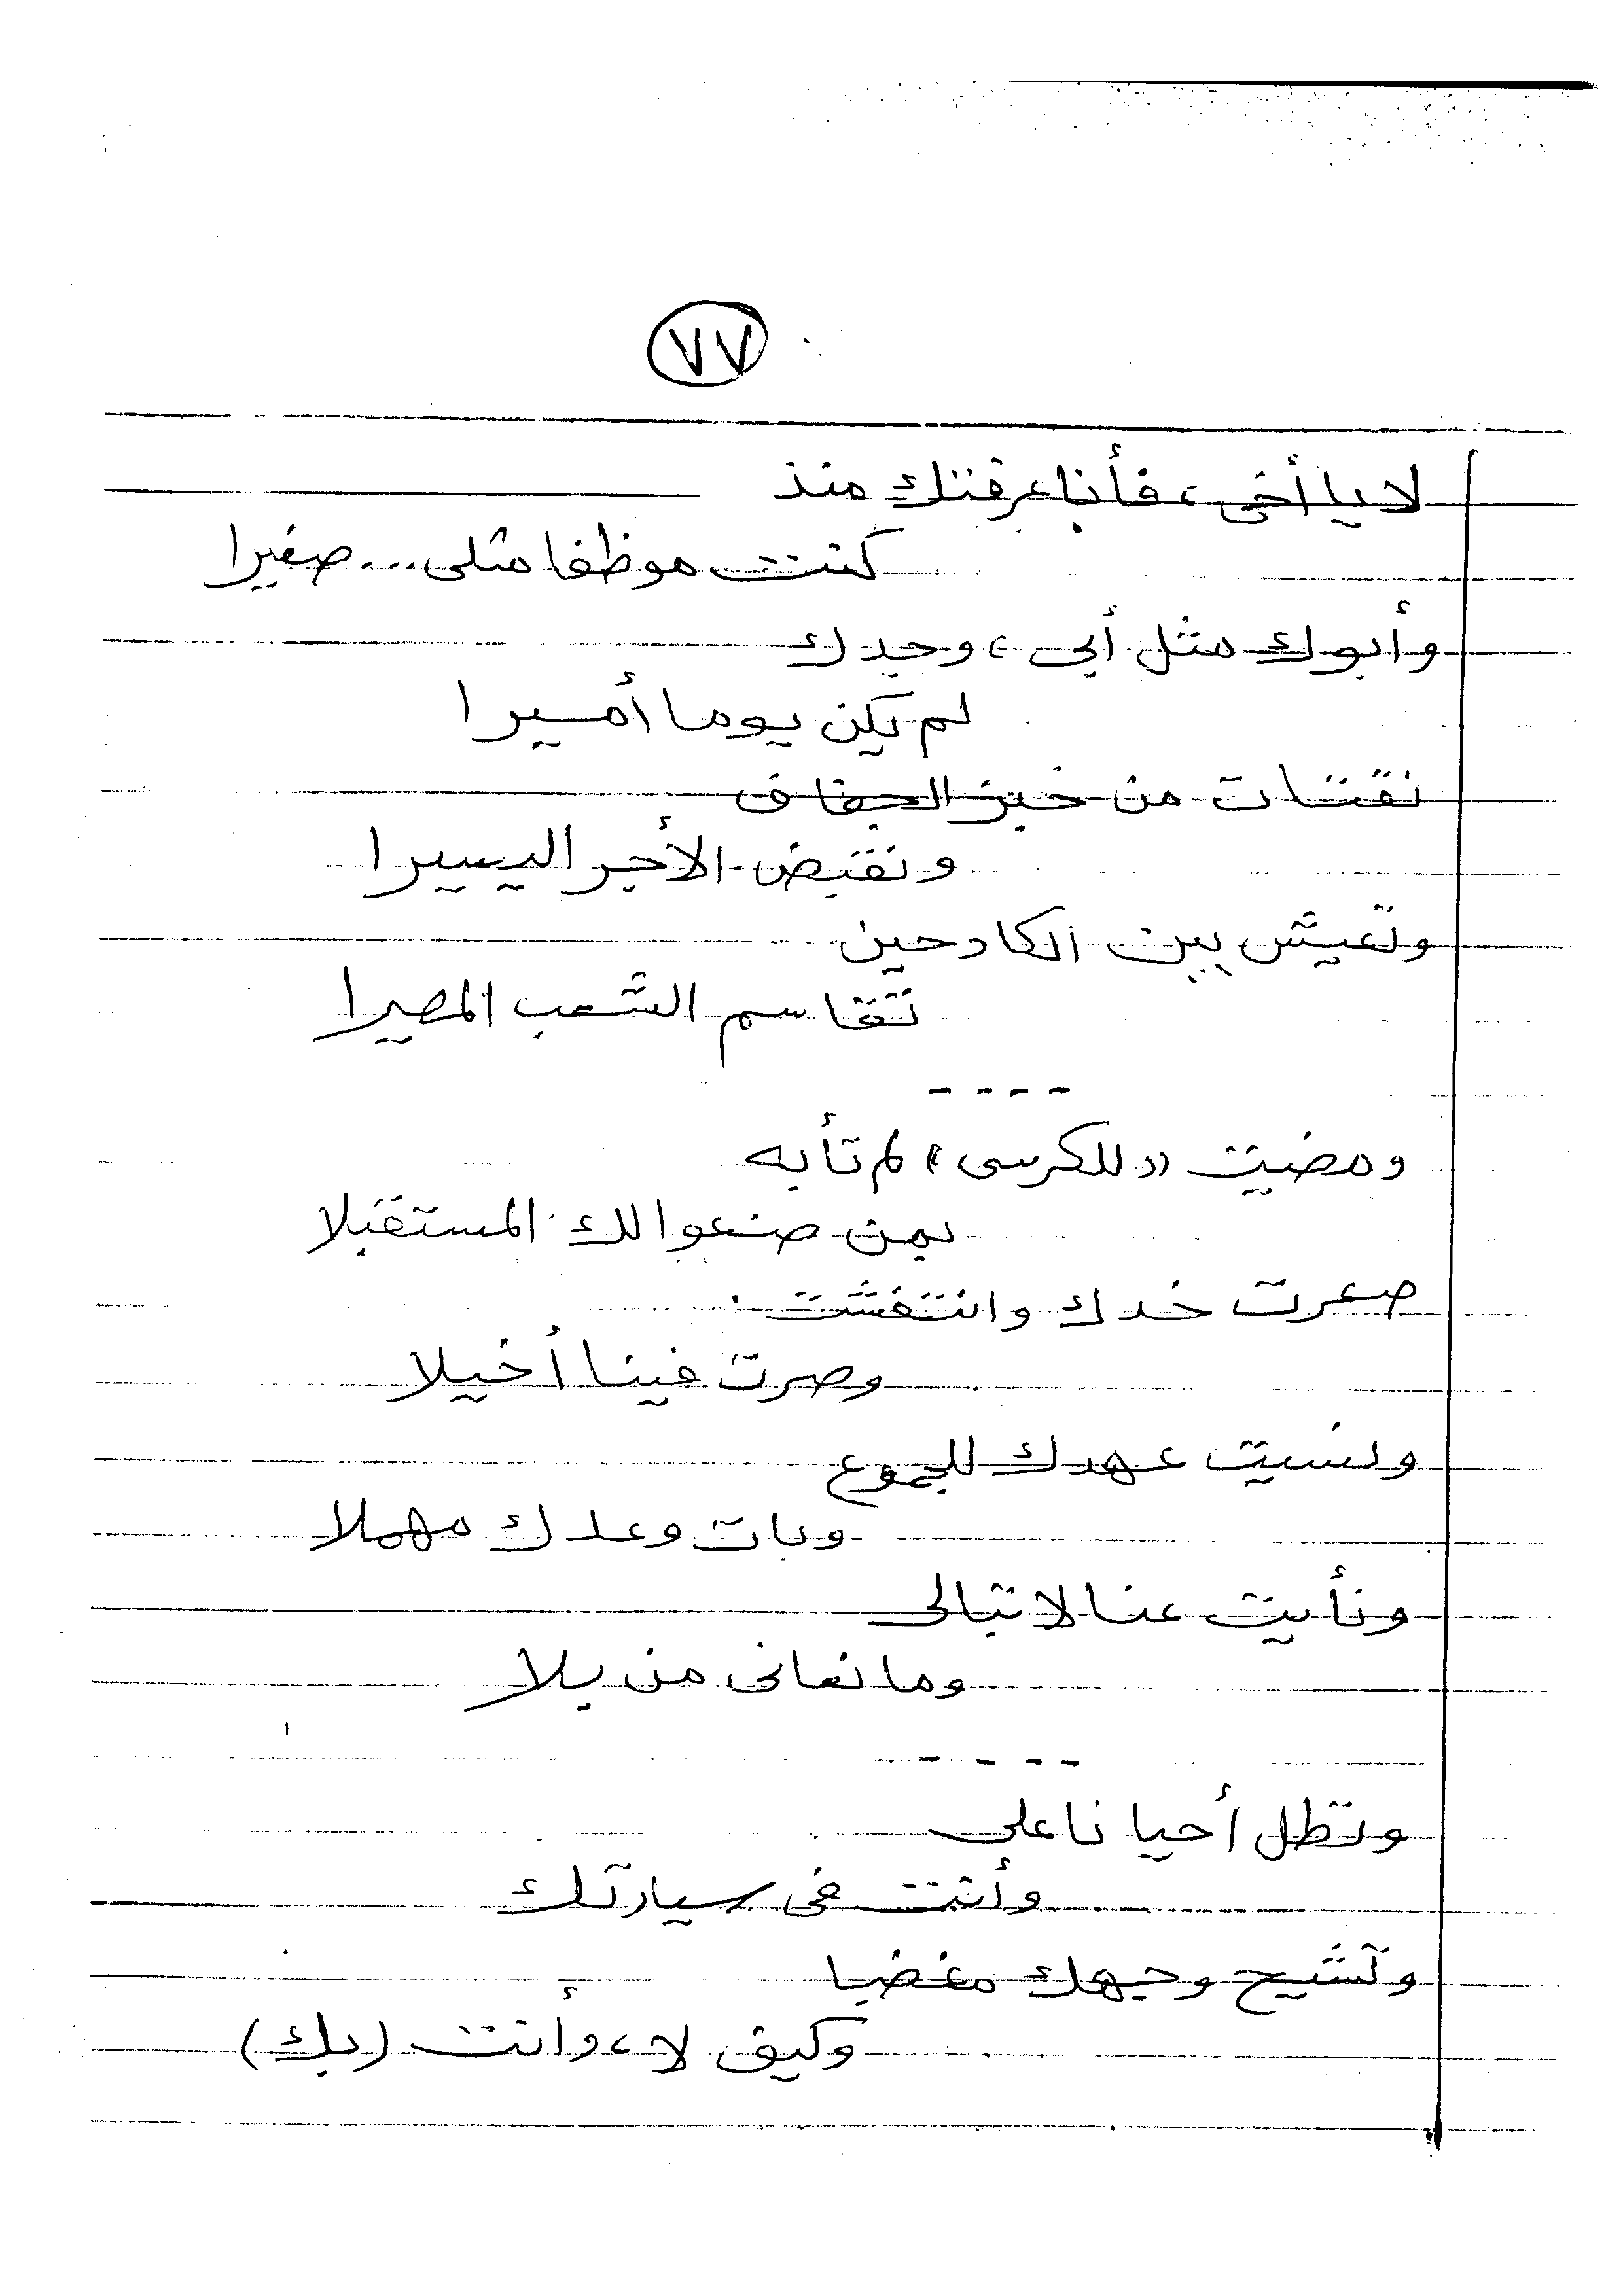 ٧٧
لا يا أخى، فأنا عرفتك منذ
كنت موظفا مثلى... صغيرا
وأبوك مثل أبى، وجدك
لم يكن يوما أميرا
نقتات من خبز الجفاف
ونقبض الأجر اليسيرا
وتعيش بين الكادحين
تقاسم الشعب المصيرا
- - - -
ومضيت «للكرسى» لم تأبه
بمن صنعوا لك المستقبلا
صعرت خدك وانتفشت
وصرت فينا أخيلا
ونسيت عهدك للجموع
وبات وعدك مهملا
ونأيت عنا لا تبالى
وما نعانى من بلا
- - - -
وتطل أحيانا على
وأنت فى سيارتك
وتشيح وجهك مغضبا
وكيف لا، وأنت (بك)